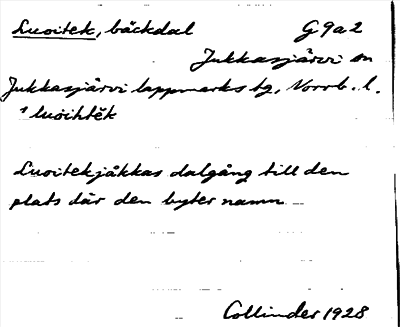 Luoitek, bäckdal G9a2
Jukkasjärvi sn
Jukkasjärvi lappmarks tg, Norrb. l.
luöihtĕk
Luoitekjåkkas dalgång till den
plats där den byter namn
Collinder 1928